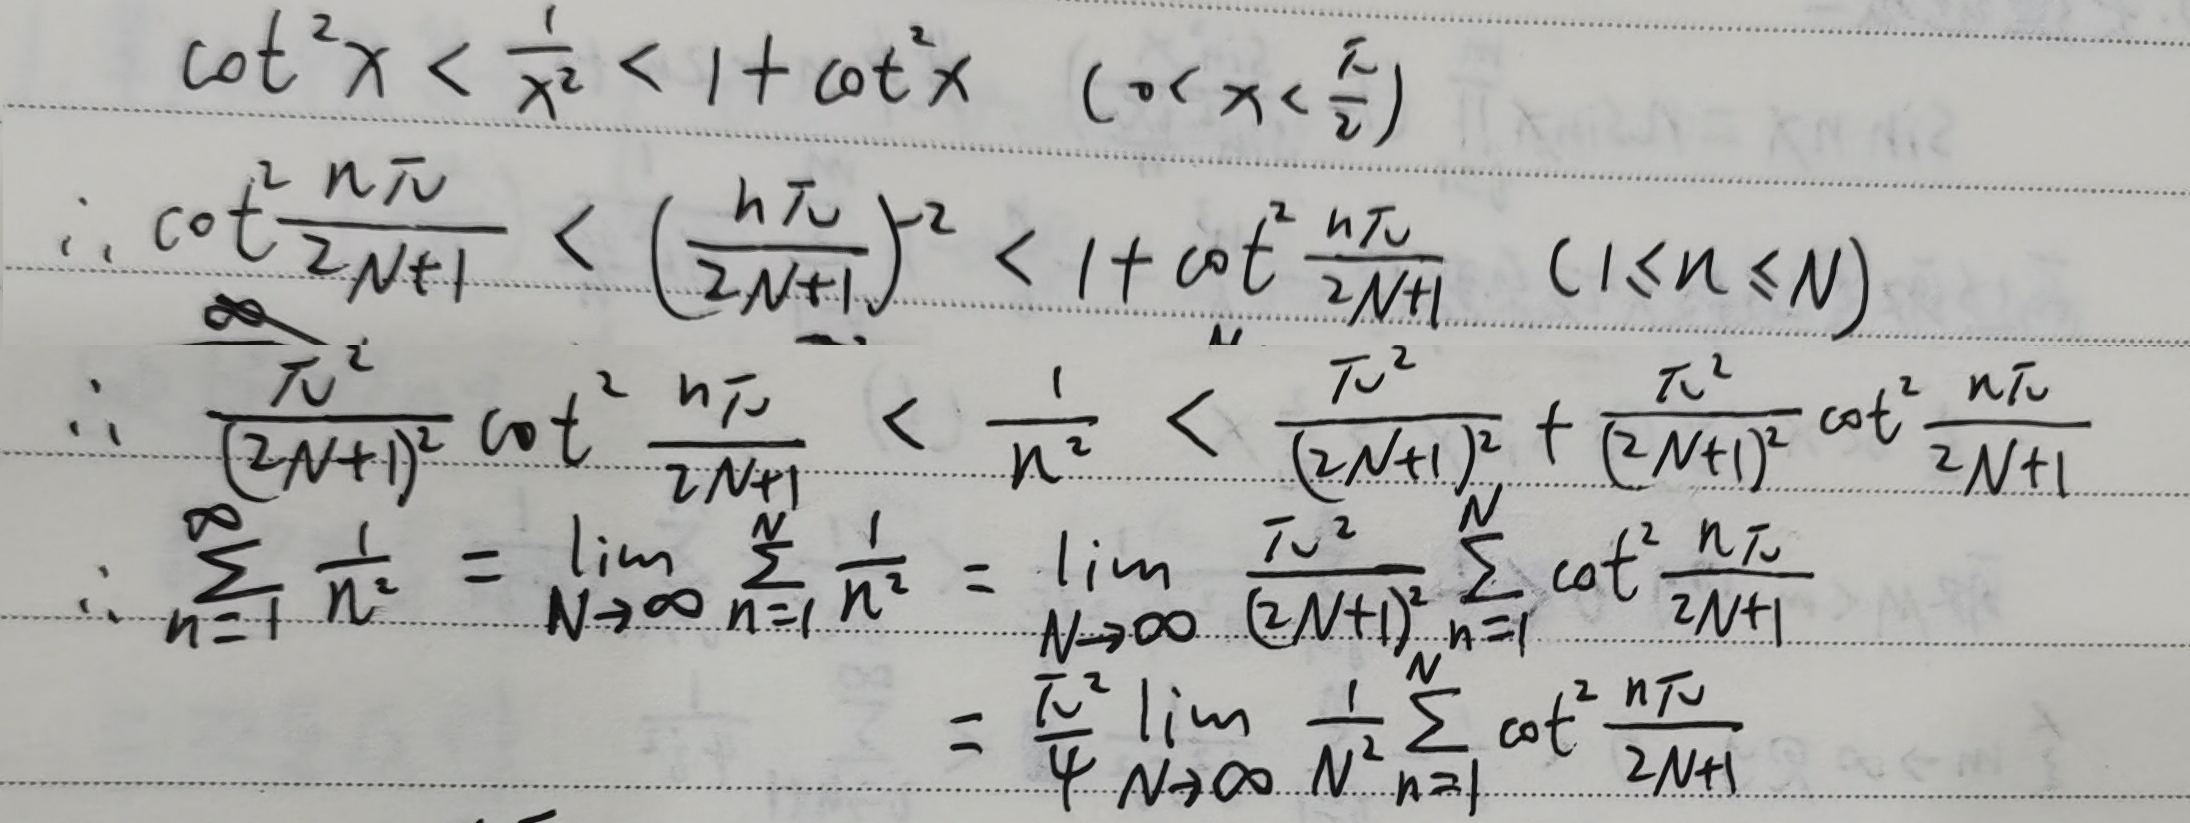 cot²x < 1/x² < 1 + cot²x (0 < x < π/2)
∴ cot² nπ/(2N+1) < (nπ/(2N+1))⁻² < 1 + cot² nπ/(2N+1) (1 ≤ n ≤ N)
∴ π²/(2N+1)² cot² nπ/(2N+1) < 1/n² < π²/(2N+1)² + π²/(2N+1)² cot² nπ/(2N+1)
∴ ∑_{n=1}^{∞} 1/n² = lim_{N→∞} ∑_{n=1}^{N} 1/n² = lim_{N→∞} π²/(2N+1)² ∑_{n=1}^{N} cot² nπ/(2N+1)
= π²/4 lim_{N→∞} 1/N² ∑_{n=1}^{N} cot² nπ/(2N+1)